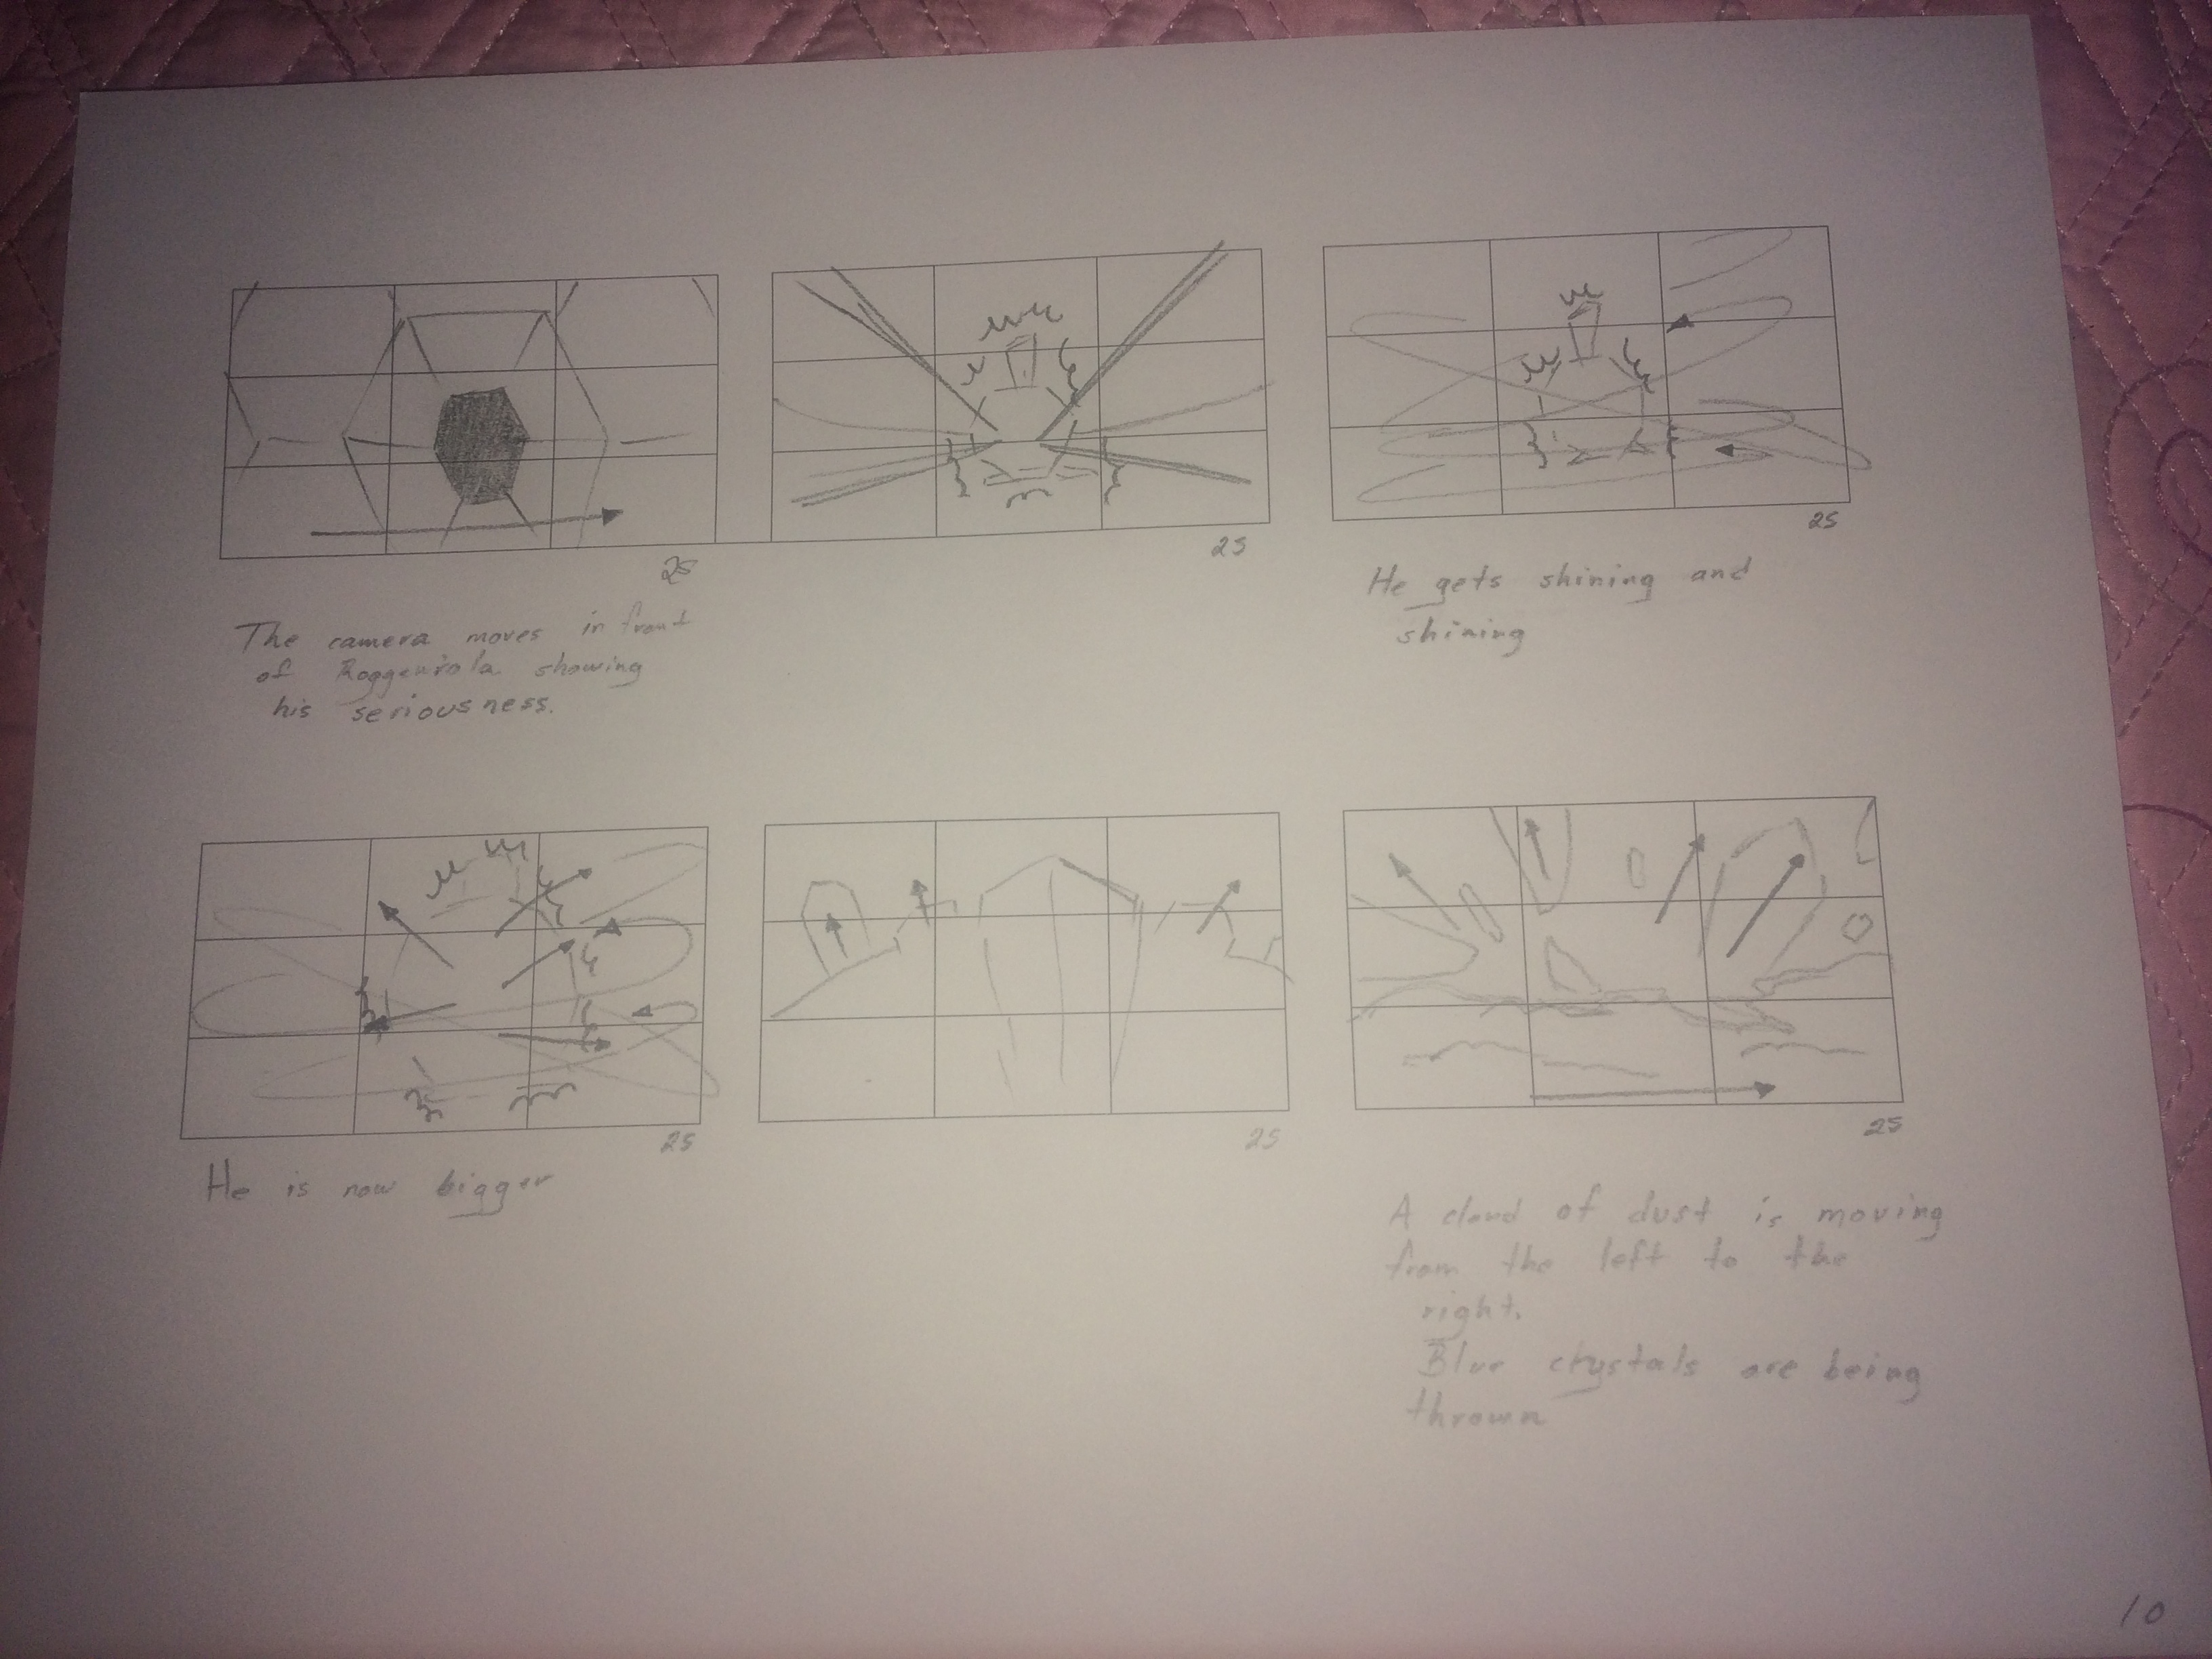 25
25
25
The camera moves in front
of Roggenrola showing
his seriousness.
He gets shining and
shining
25
25
25
He is now bigger
A cloud of dust is moving
from the left to the
right.
Blue crystals are being
thrown
10